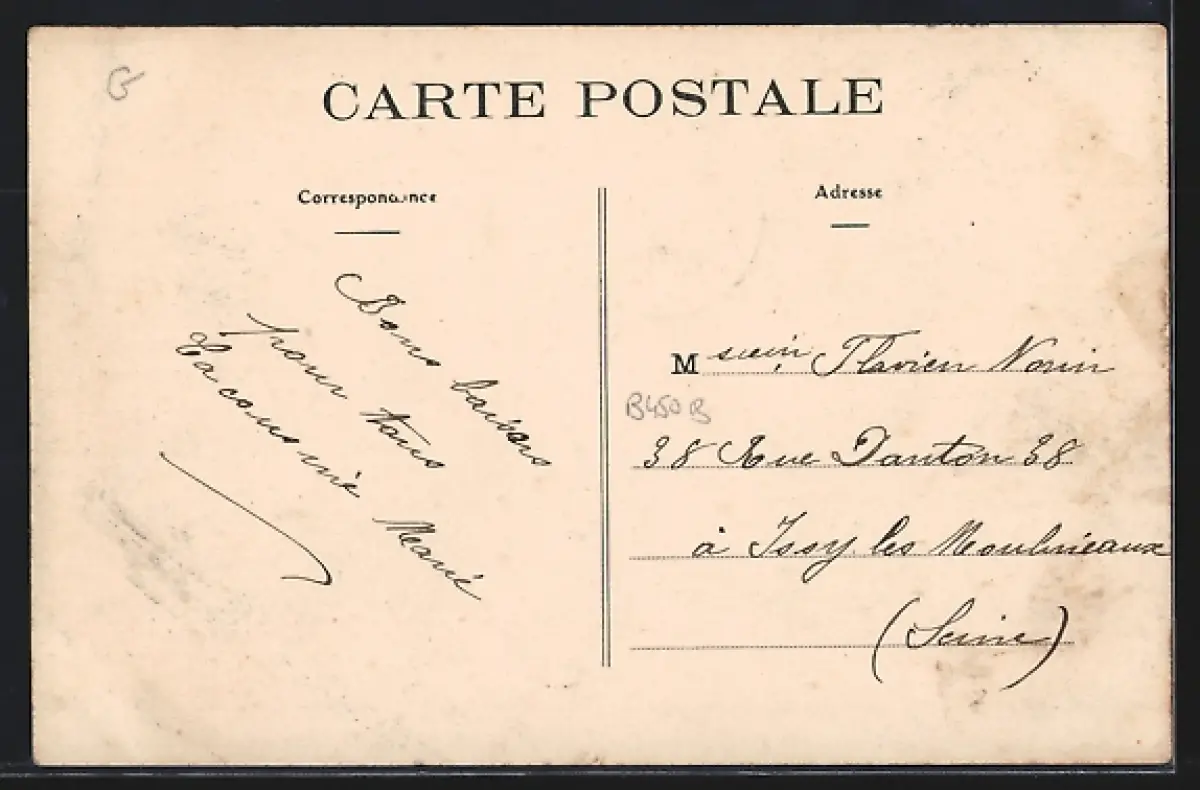 CARTE POSTALE
Correspondance
Adresse
Bons baisers
pour tous
ta cousine Marie
M Flavien
B450B
38 Rue Danton 38
à Issy les Moulineaux
(Seine)